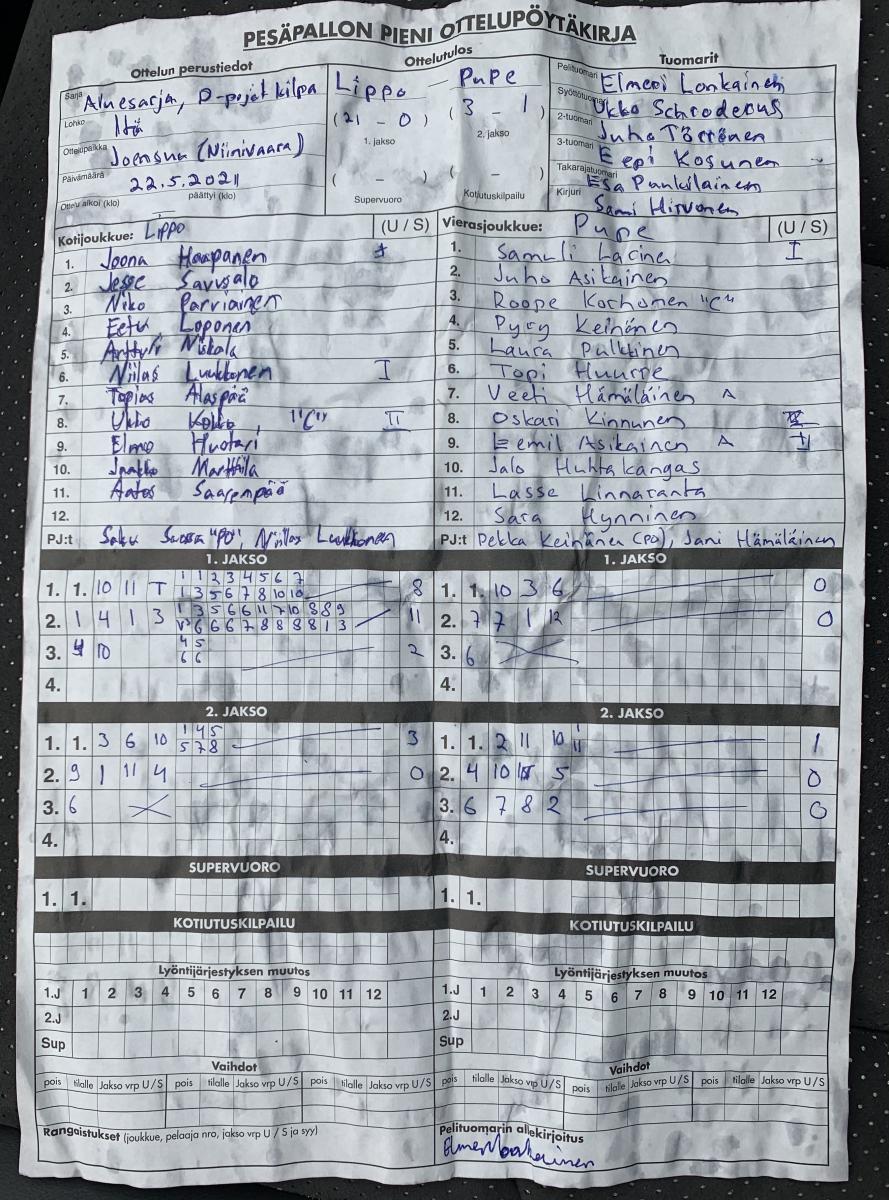 PESÄPALLON PIENI OTTELUPÖYTÄKIRJA
Ottelun perustiedot Ottelutulos Tuomarit
Sarja Aluesarja, D-pojat kilpa
Lohko Itä
Ottelupaikka Joensuu (Niinivaara)
Päivämäärä 22.5.2021
Ottelu alkoi (klo) päättyi (klo)
Lippo — Pupe
(21 - 0) (3 - 1)
1. jakso 2. jakso
( - ) ( - )
Supervuoro Kotiutuskilpailu
Pelituomari Elmeri Lonkainen
Syöttötuomari Ukko Schroderus
2-tuomari Juho Törrönen
3-tuomari Eepi Kosunen
Takarajatuomari Esa Pankilainen
Kirjuri Sami Hirvonen
Kotijoukkue: Lippo (U / S)
1. Joona Haapanen
2. Jesse Savusalo
3. Niko Parviainen
4. Eetu Loponen
5. Arttu Niskala
6. Niilas Luukkonen I
7. Topias Alaspää
8. Ukko Kokko, "C" II
9. Elmo Huotari
10. Jaakko Marttila
11. Aatos Saarempää
12.
PJ:t Saku "PO", Niilas Luukkonen
Vierasjoukkue: Pupe (U / S)
1. Samuli Lacina I
2. Juho Asikainen
3. Roope Korhonen "C"
4. Pyry Keinänen
5. Laura Pulkkinen
6. Topi Huurre
7. Veeti Hämäläinen A
8. Oskari Kinnunen
9. Eemil Asikainen A
10. Jalo Huhtakangas
11. Lasse Linnaranta
12. Sara Hynninen
PJ:t Pekka Keinänen (PO), Jani Hämäläinen
1. JAKSO
1. 1. 10 11 T 1 1 2 3 4 5 6 7 8
1 3 5 6 7 8 10 10
2. 1 4 1 3 1 3 5 6 6 11 7 10 8 8 9 11
6 6 6 7 8 8 8 8 1 3
3. 4 10 4 5 2
6 6
4.
1. JAKSO
1. 1. 10 3 6 0
2. 7 7 1 12 0
3. 6
4.
2. JAKSO
1. 1. 3 6 10 1 4 5 3
5 7 8
2. 9 1 11 4 0
3. 6
4.
2. JAKSO
1. 1. 2 11 10 1 1
11
2. 4 10 5 0
3. 6 7 8 2 0
4.
SUPERVUORO
1. 1.
SUPERVUORO
1. 1.
KOTIUTUSKILPAILU
KOTIUTUSKILPAILU
Lyöntijärjestyksen muutos
1.J 1 2 3 4 5 6 7 8 9 10 11 12
2.J
Sup
Lyöntijärjestyksen muutos
1.J 1 2 3 4 5 6 7 8 9 10 11 12
2.J
Sup
Vaihdot
pois tilalle Jakso vrp U/S pois tilalle Jakso vrp U/S pois tilalle Jakso vrp U/S
Vaihdot
pois tilalle Jakso vrp U/S pois tilalle Jakso vrp U/S pois tilalle Jakso vrp U/S
Rangaistukset (joukkue, pelaaja nro, jakso vrp U / S ja syy)
Pelituomarin allekirjoitus